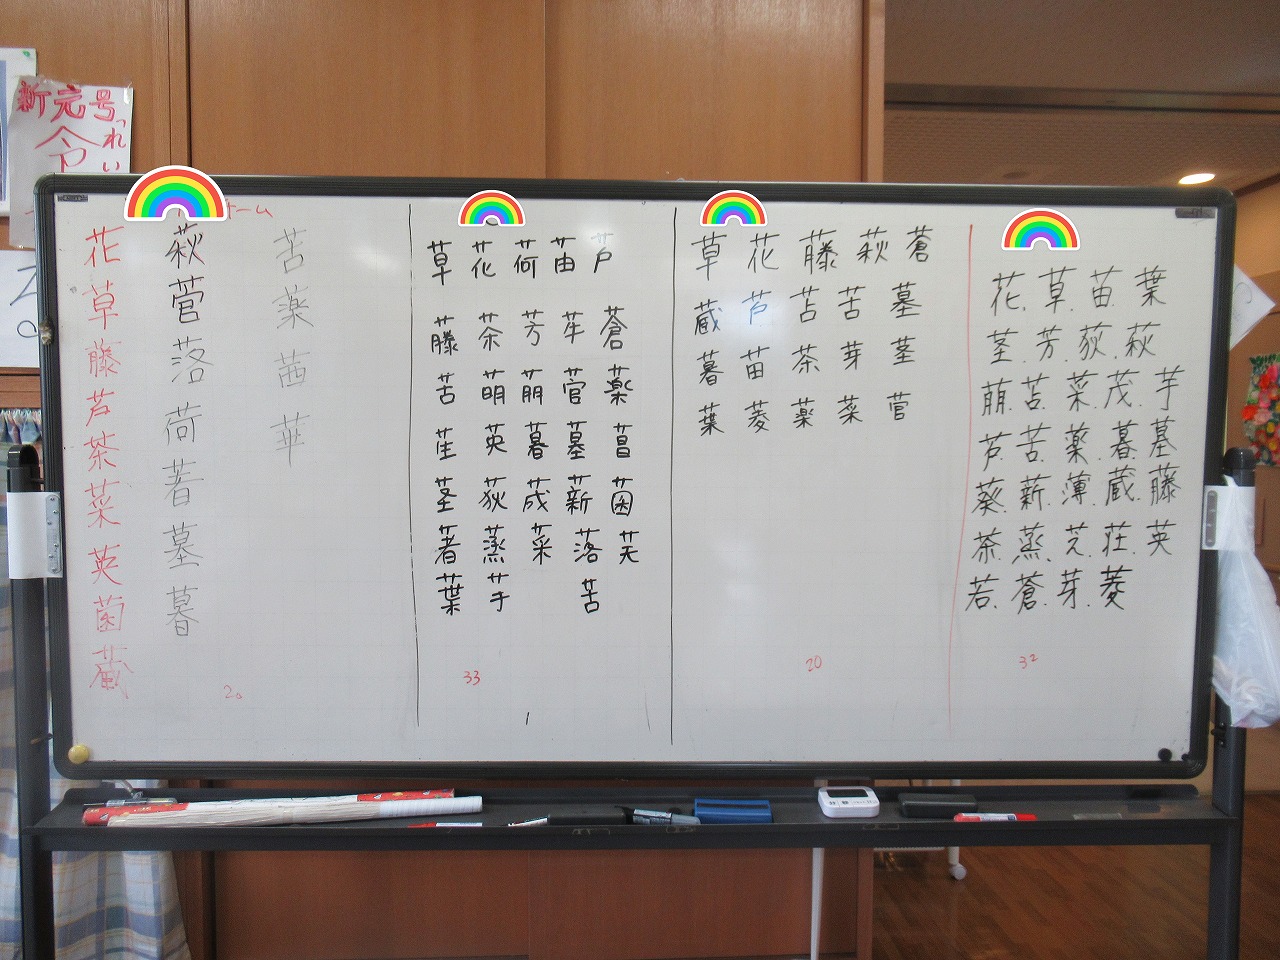 新元号
令
れい
ーム
花
草
藤
芦
茶
菜
英
菌
蔵
萩
菅
落
荷
若
墓
暮
苦
薬
茜
華
20
草 花 荷 苗 芦
藤 茶 芳 苼 蒼
苦 萌 萠 菅 薬
苼 英 暮 墓 菖
茎 荻 茂 新 菌
著 蒸 菜 落 芙
葉 芋 苦
33
草 花 藤 萩 蒼
蔵 芦 苫 苦 墓
暮 苗 茶 芽 茎
葉 菱 薬 菜 菅
20
花. 草. 苗. 葉
茎. 芳. 荻. 萩
萠. 苫. 菜. 茂. 芋
芦. 苦. 薬. 暮. 墓
葵. 薪. 薄. 蔵. 藤
茶. 蒸. 芝. 荘. 英
若. 蒼. 芽. 菱
32